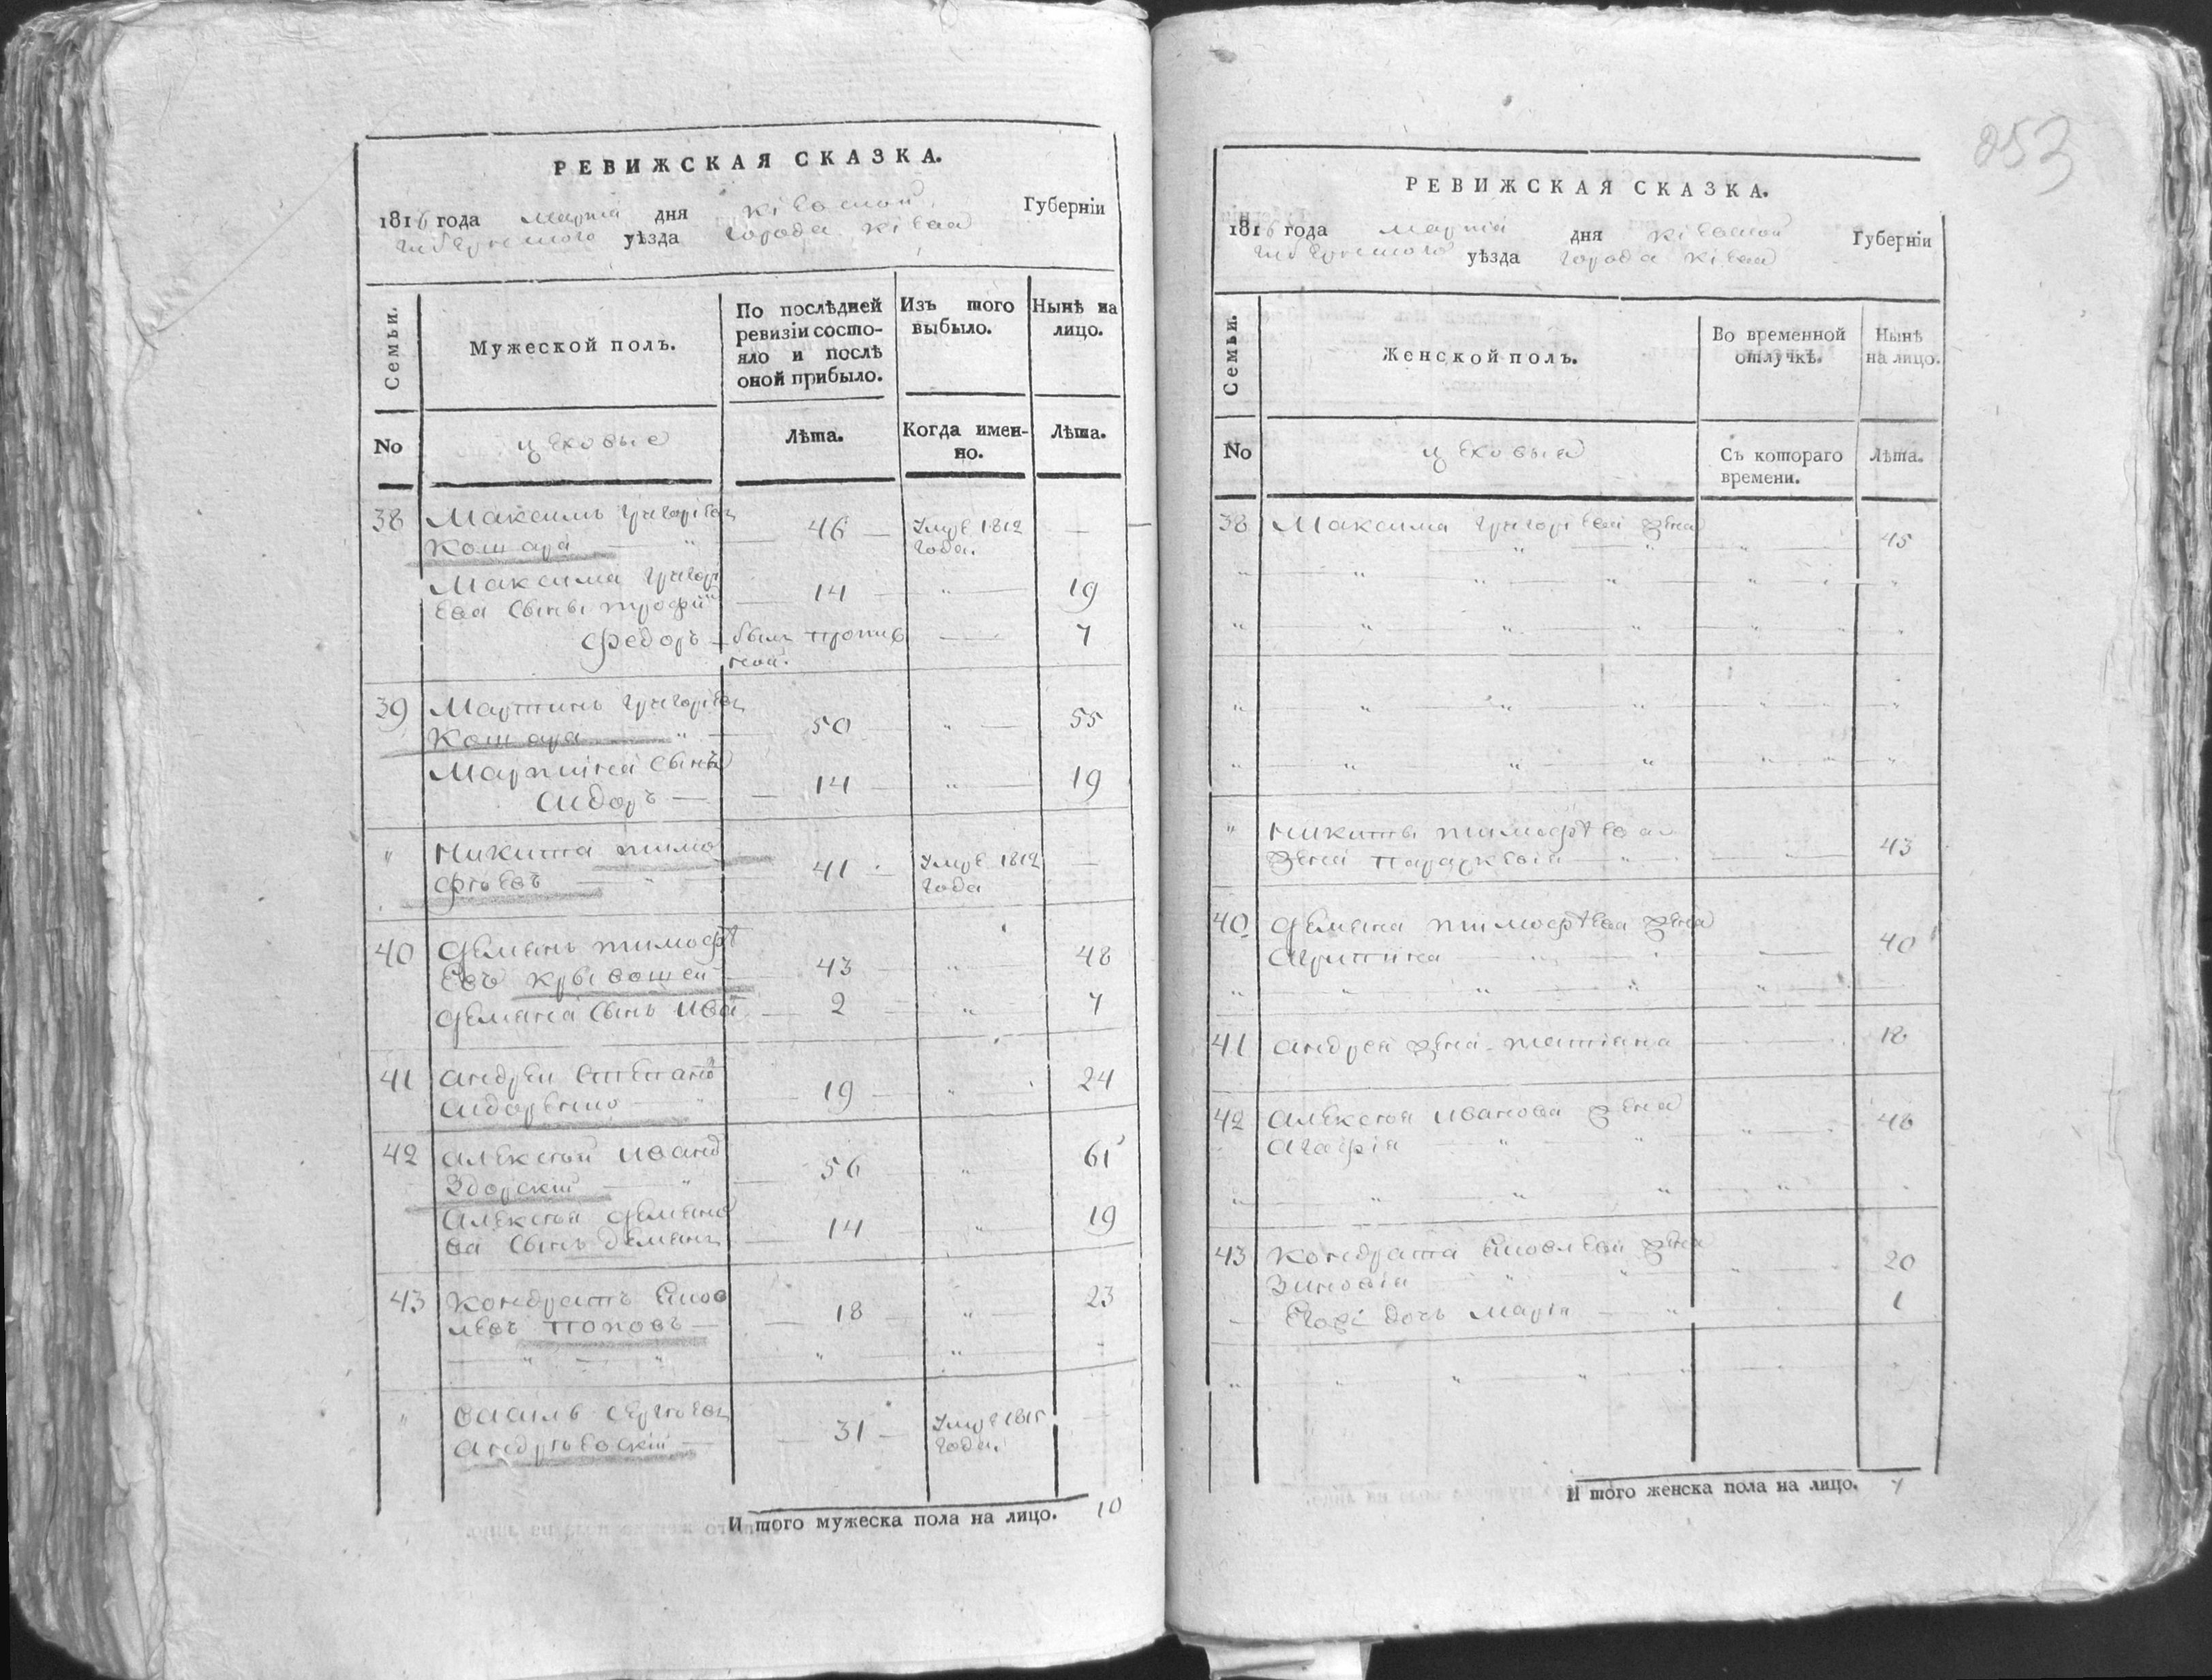 РЕВИЖСКАЯ СКАЗКА.
1816 года Марта дня Кіевской Губерніи
уѣзда города Кіева
Семьи. Мужеской полъ. По послѣдней ревизіи состояло и послѣ оной прибыло. Изъ того выбыло. Нынѣ на лицо.
No цеховые Лѣта. Когда именно. Лѣта.
38 Максимъ Григоріевъ
Кошара — " — 46 — Умре 1812 года. —
Максима Григорі
ева сыны Трофи — 14 — " — 19
Федоръ — былъ пропис
ной. — 7
39 Мартинъ Григоріевъ
Кошара — " — 50 " — 55
Мартина сынъ
Сидоръ — — 14 — " — 19
" Никита Тимо
фѣевъ — " — 41 — Умре 1812 года —
40 Демянъ Тимофѣ
евъ Кривошей — 43 — " — 48
Демяна сынъ Ива — 2 — " — 7
41 Андрей Степано
Сидоренко — " — 19 — " 24
42 Алексѣй Ивано
Здорскій — " — 56 " 61
Алексѣя Демяно
ва сынъ Демянъ — 14 " 19
43 Кондратъ Яков
левъ Поповъ — — 18 " — 23
— " — " " — " — "
" Василь Сергѣевъ
Андрѣевскій — — 31 — Умре 1815 года. —
И того мужеска пола на лицо. 10
253
РЕВИЖСКАЯ СКАЗКА.
1816 года Марта дня Кіевской Губерніи
уѣзда города Кіева
Семьи. Женской полъ. Во временной отлучкѣ. Нынѣ на лицо.
No цеховые Съ котораго времени. Лѣта.
38 Максима Григоріева жена
— " — " — " — 45
" Никиты Тимофѣева
жена Параскевія — " — — 43
40 Демяна Тимофѣева жена
Агрипина — 40
41 Андрея жена Татіана — 18
42 Алексѣя Иванова жена
Агафія " — " — " — 48
43 Кондрата Яковлева жена
Зиновія " — " — 20
— Егожъ дочь Марія — " 1
И того женска пола на лицо. 7